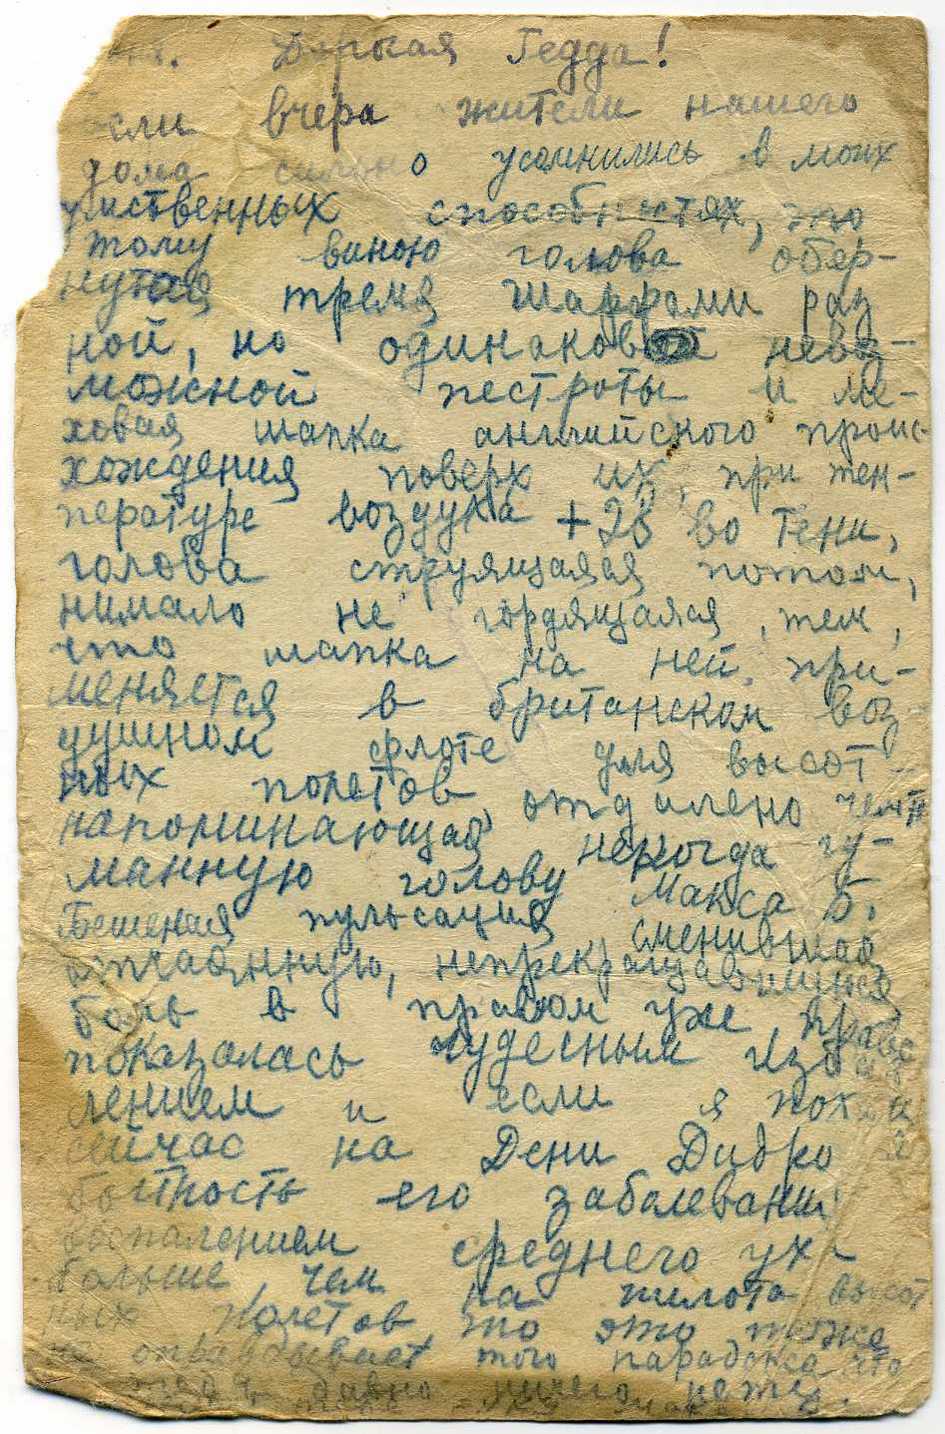 Гедда!
вчера жители нашего
дома усомнились в моих
умственных способностях, это
тому виною голова обер-
нутая тремя шарфами раз
ной, но одинаково невоз-
можной пестроты и ме-
ховая шапка английского проис-
хождения поверх их, при тем-
пературе воздуха +28 во тени,
голова струящаяся потом,
нимало не гордящаяся, тем,
что шапка на ней, при-
меняется в британском воз-
душном флоте для высот-
ных полетов, отдалено чем то
напоминающая некогда гу-
манную голову Макса Б.
Бешеная пульсация сменившая
отчаянную, непрекращавшиюся
боль в правом уже
показалась чудесным
лением и если я похож
сейчас на Дени Дидро
его заболевания
воспалением среднего уха
больше, чем на пилота высот
ных полетов то это тоже
не оправдывает того парадокса что
давно ничего нет